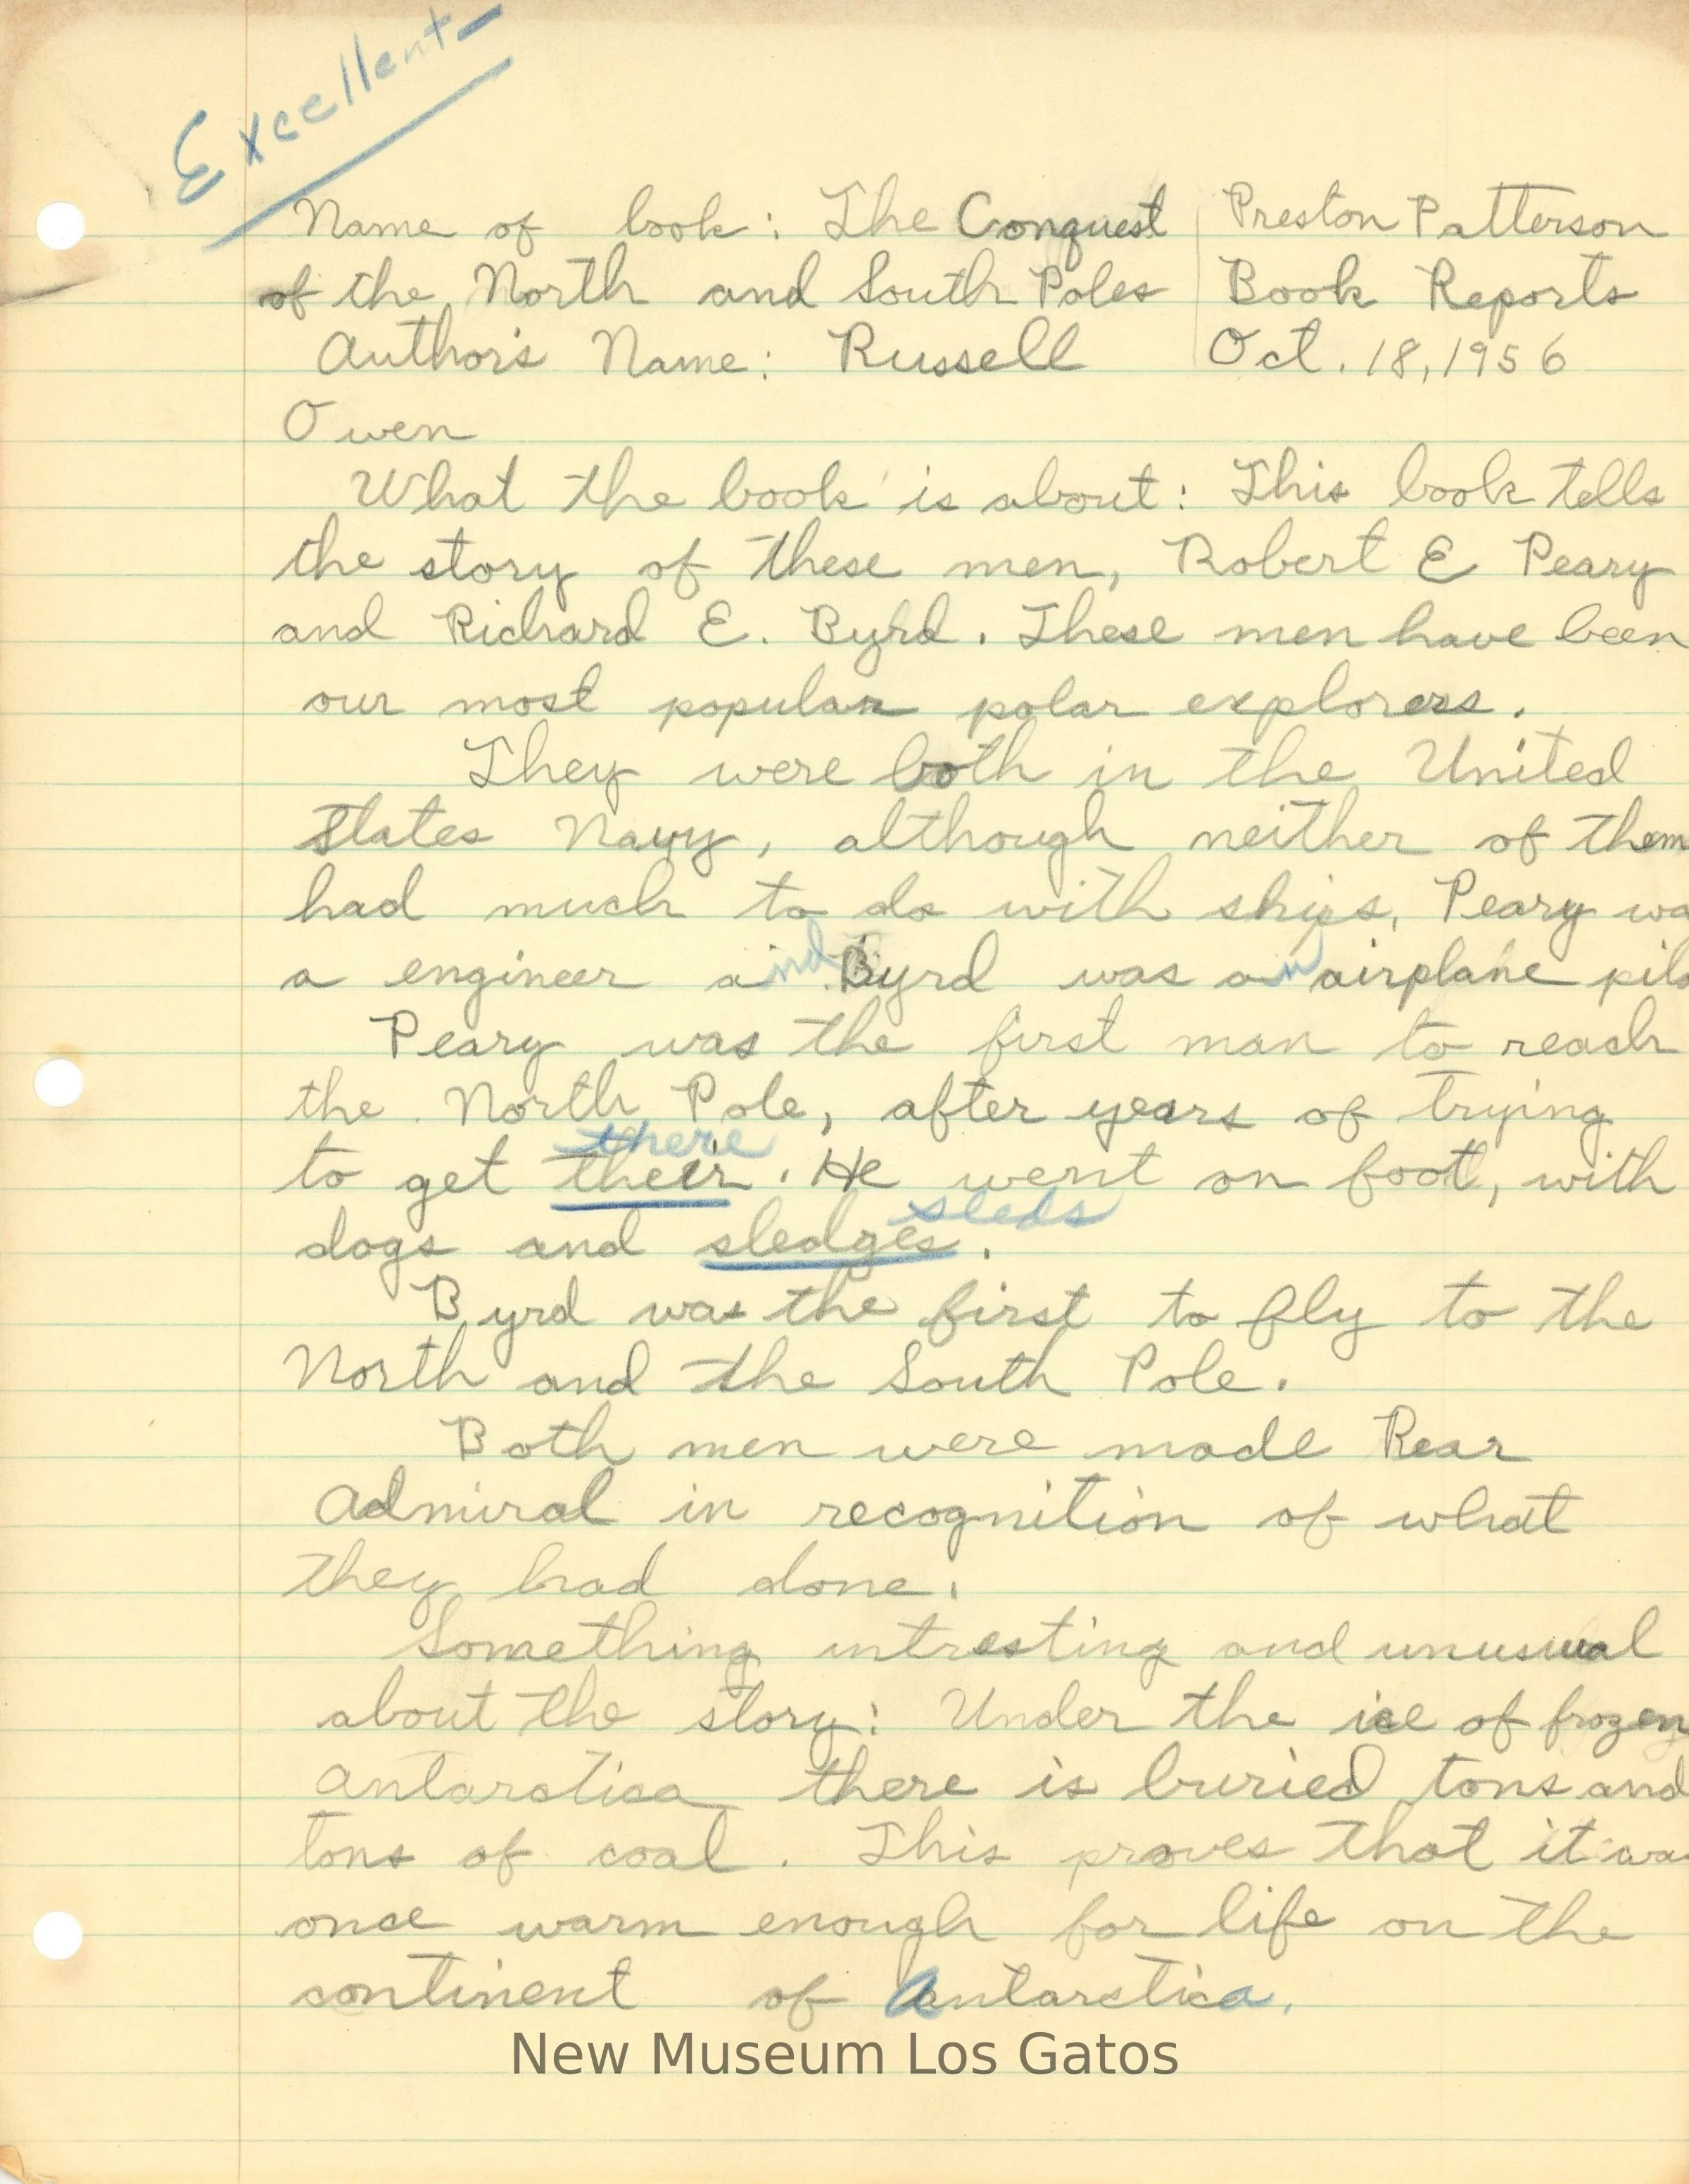 Excellent
Name of book: The Conquest
of the North and South Poles
Author's Name: Russell
Owen
Preston Patterson
Book Reports
Oct. 18, 1956
What the book is about: This book tells
the story of these men, Robert E Peary
and Richard E. Byrd. These men have been
our most popular polar explorers.
They were both in the United
States Navy, although neither of them
had much to do with ships, Peary wa
a engineer and Byrd was an airplane pilo
Peary was the first man to reach
the North Pole, after years of trying
there
to get their. He went on foot, with
sleds
dogs and sledges.
Byrd was the first to fly to the
North and the South Pole.
Both men were made Rear
Admiral in recognition of what
they had done.
Something intresting and unusual
about the story: Under the ice of frozen
antarctica there is buried tons and
tons of coal. This proves that it wa
once warm enough for life on the
continent of Antarctica.
New Museum Los Gatos